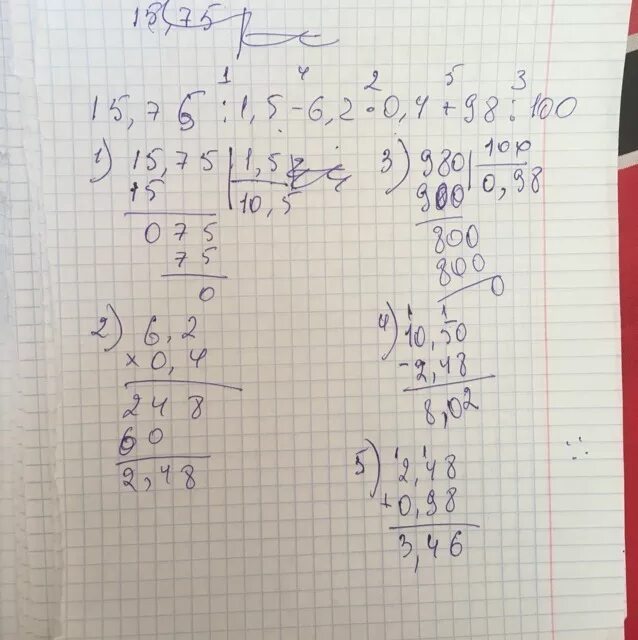 15,75
1 4 2 5 3
15,75 : 1,5 - 6,2 · 0,4 + 98 : 100
1) 15,75 | 1,5
15 | 10,5
075
75
0
3) 980 | 100
900 | 0,98
800
800
0
2) 6,2
× 0,4
248
60
2,48
4) 10,50
- 2,48
8,02
5) 2,48
+ 0,98
3,46